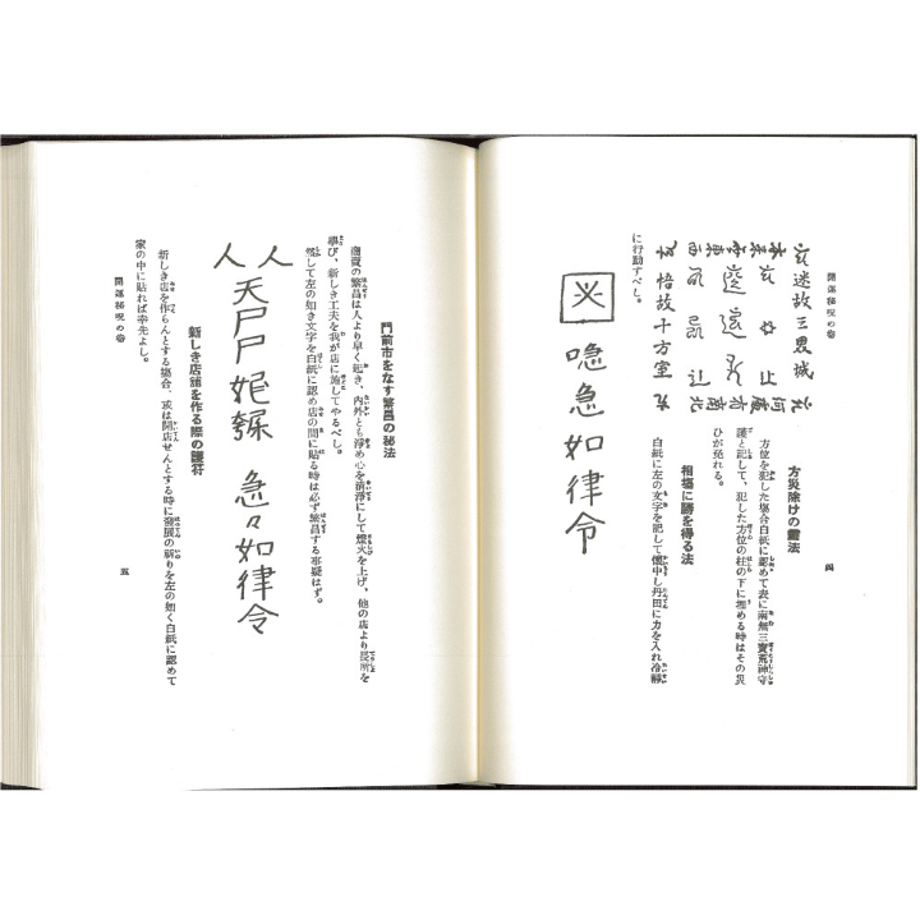 開運秘呪の巻
四
迷故三界城
悟故十方室
方災除けの靈法
方位を犯した場合白紙に認めて表に南無三寳荒神守
護と記して、犯した方位の柱の下に埋める時はその災
ひが免れる。
相場に勝を得る法
白紙に左の文字を記して懐中し丹田に力を入れ冷靜
に行動すべし。
急如律令
門前市をなす繁昌の秘法
商賣の繁昌は人より早く起き、内外とも淨め心を清淨にして燈火を上げ、他の店より長所を
學び、新しき工夫を我が店に施してやるべし。
然して左の如き文字を白紙に認め店の間に貼る時は必ず繁昌する事疑はず。
人人
天尸尸
急々如律令
新しき店舗を作る際の護符
新しき店を作らんとする場合、或は開店せんとする時に發展の祈りを左の如く白紙に認めて
家の中に貼れば幸先よし。
開運秘呪の巻
五